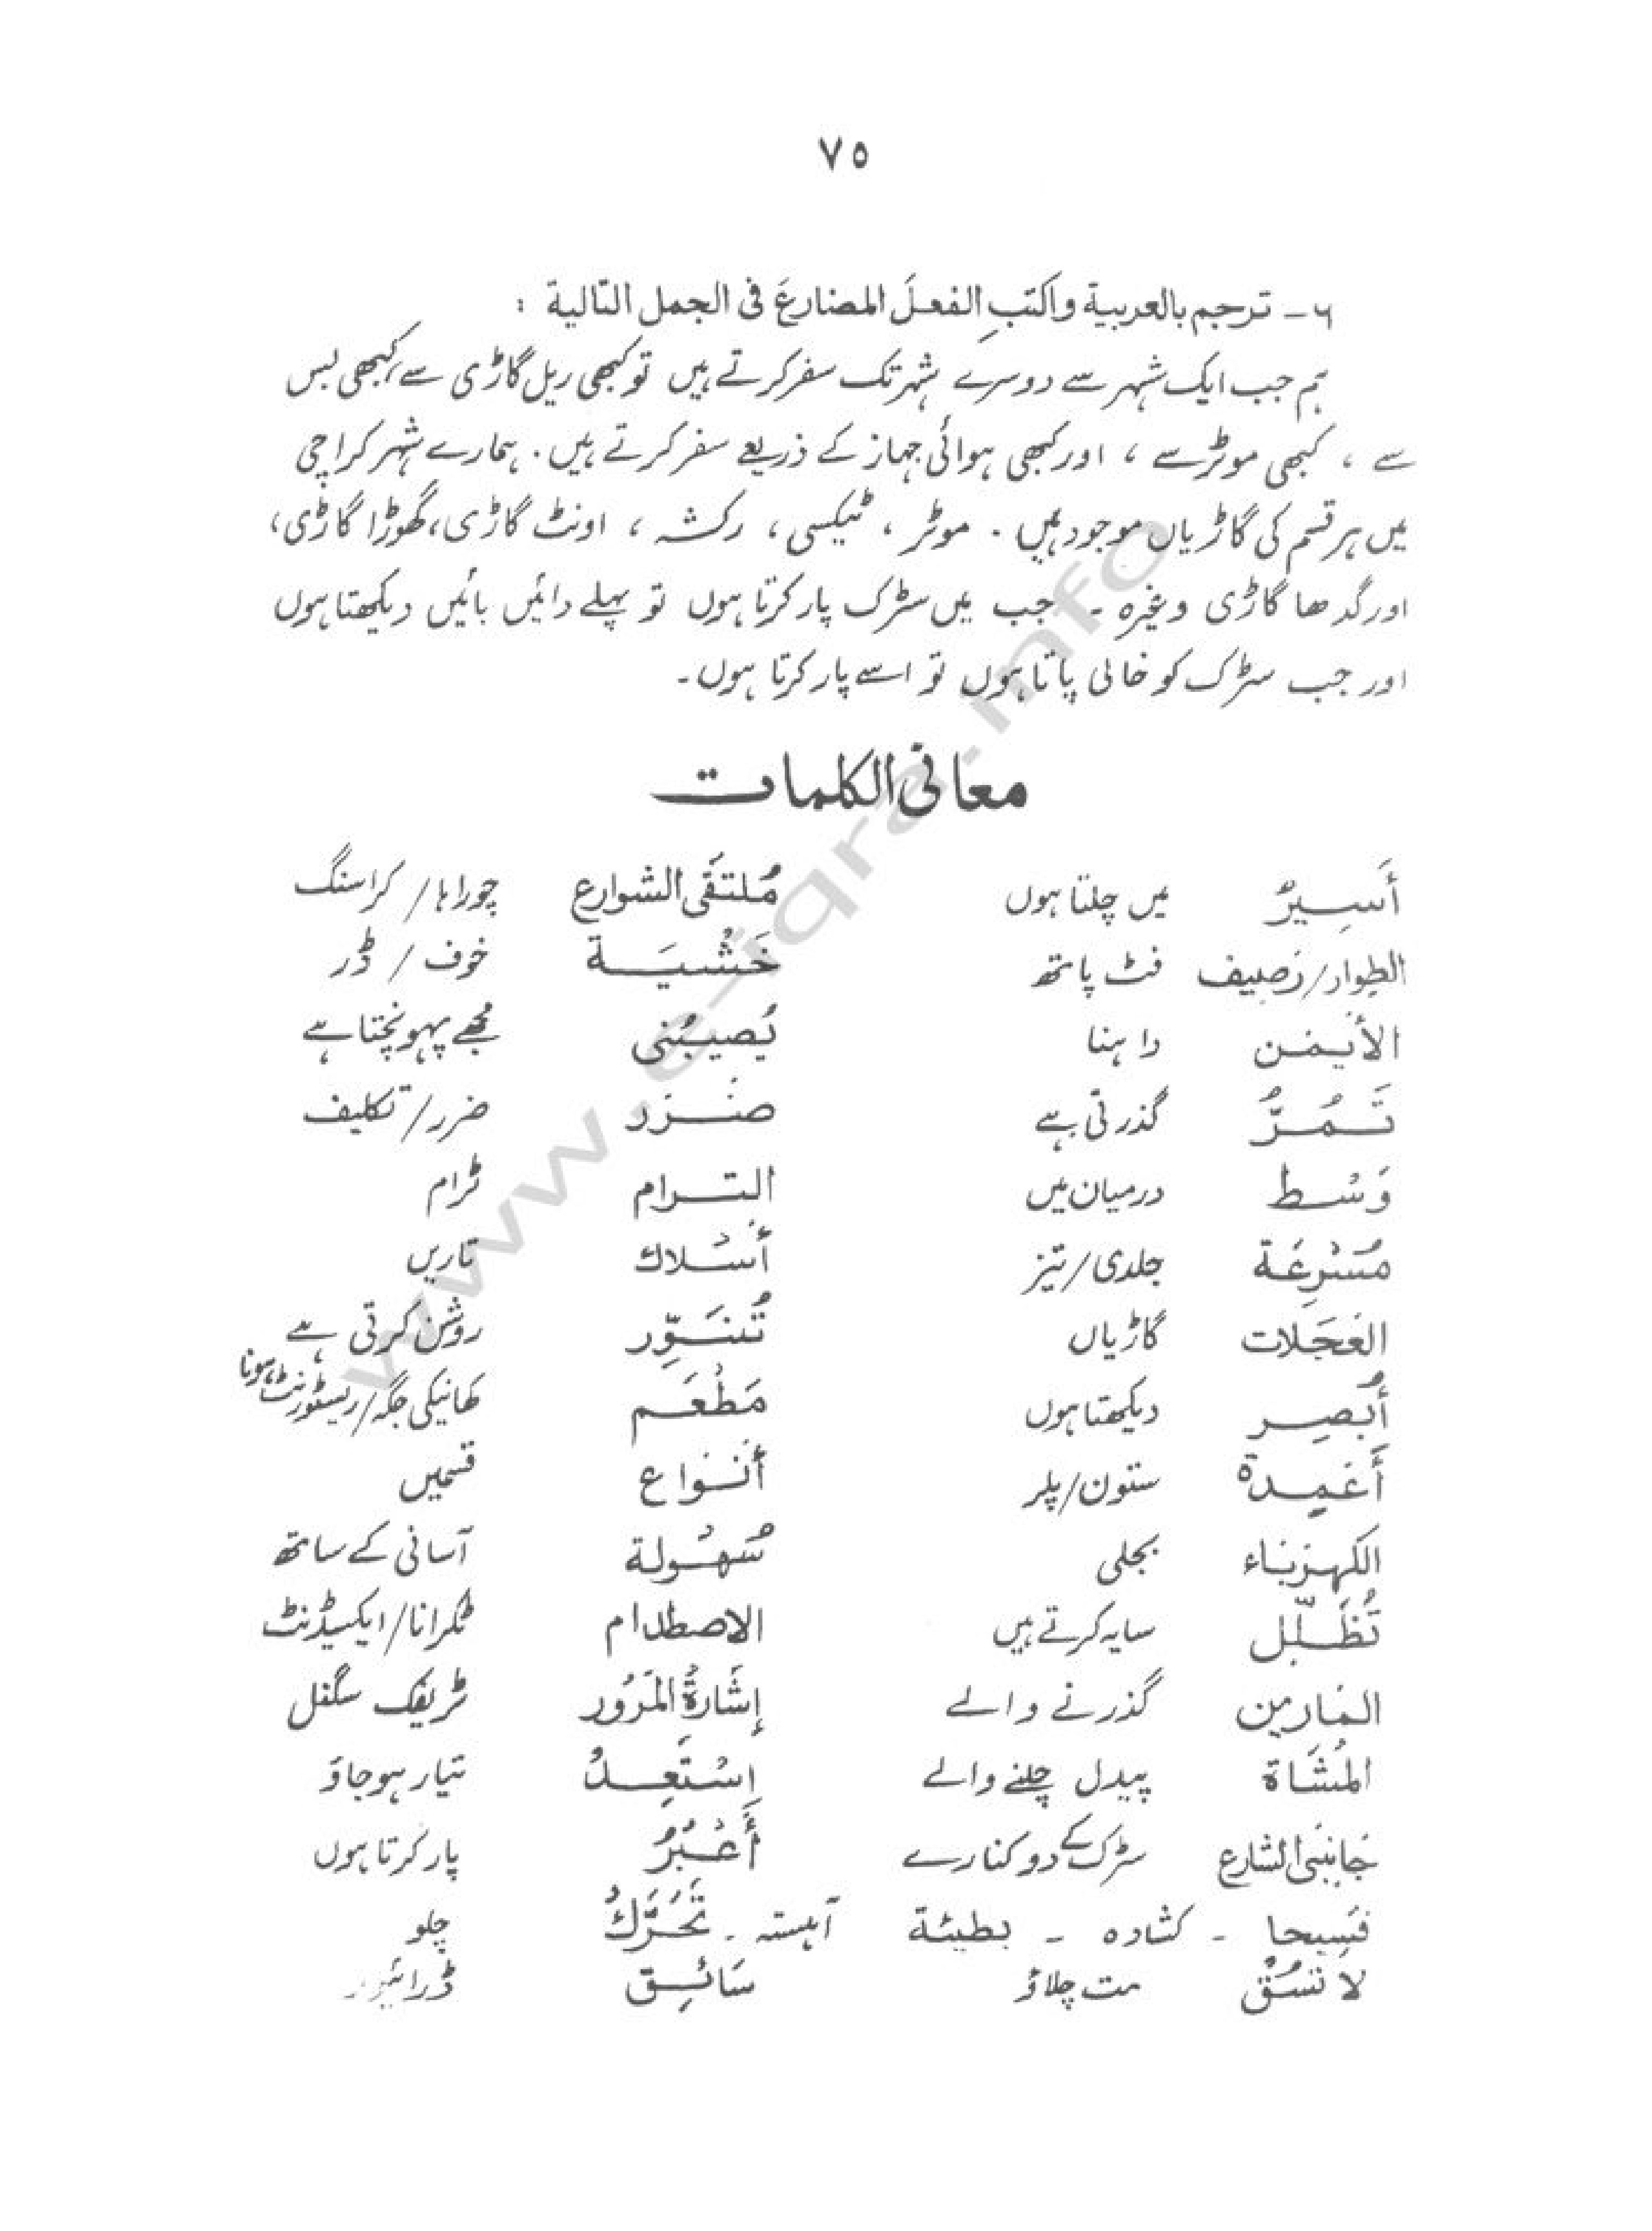 ٧٥
٦ ـ ترجم بالعربية واكتبِ الفعلَ المضارعَ فى الجمل التّالية :
ہم جب ایک شہر سے دوسرے شہر تک سفر کرتے ہیں تو کبھی ریل گاڑی سے، کبھی بس
سے ، کبھی موٹر سے ، اور کبھی ہوائی جہاز کے ذریعے سفر کرتے ہیں۔ ہمارے شہر کراچی
میں ہر قسم کی گاڑیاں موجود ہیں ۔ موٹر ، ٹیکسی ، رکشہ ، اونٹ گاڑی، گھوڑا گاڑی،
اور گدھا گاڑی وغیرہ ۔ جب میں سڑک پار کرتا ہوں تو پہلے دائیں بائیں دیکھتا ہوں
اور جب سڑک کو خالی پاتا ہوں تو اسے پار کرتا ہوں۔
معانى الكلمات
أَسِيرُ میں چلتا ہوں مُلتَقَى الشوارع چوراہا / کراسنگ
الطوار/رَصِيف فٹ پاتھ خَشْيَة خوف / ڈر
الأيْمَن داہنا يُصيبُنى مجھے پہونچتا ہے
تَمُرُّ گذرتی ہے ضَرَر ضرر/تکلیف
وَسْط درمیان میں الترام ٹرام
مُسْرِعَة جلدی/تیز أَسْلاك تاریں
العَجَلات گاڑیاں تُنَوِّر روشن کرتی ہے
أُبْصِر دیکھتا ہوں مَطْعَم کھانیکی جگہ/ریسٹورنٹ
أَعْمِدة ستون/پلر أَنْوَاع قسمیں
الكهرَباء بجلی سُهُولة آسانی کے ساتھ
تُظَلِّل سایہ کرتے ہیں الاصطدام ٹکرانا/ایکسیڈنٹ
المَارين گذرنے والے إشَارَةُ المُرُور ٹریفک سگنل
المُشَاة پیدل چلنے والے اِسْتَعِدْ تیار ہوجاؤ
جَانِبَى الشارع سڑک کے دو کنارے أَعْبُرُ پار کرتا ہوں
فَسِيحا ۔ کشادہ ۔ بطيئة آہستہ ۔ تَحَرَّكْ چلو
لا تَسُقْ مت چلاؤ سَائِق ڈرائیور۔
www.e-iqra.info